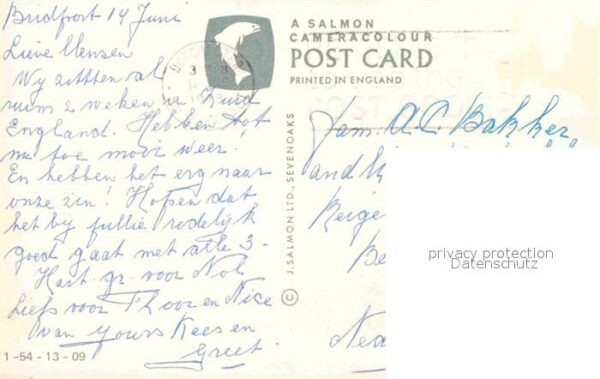 Bridfort 14 Juni
Lieve Mensen
Wy zitten al
ruim 2 weken in Zuid
England. Hebben tot
nu toe mooi weer.
En hebben het erg naar
onze zin! Hopen dat
het by jullie redelijk
goed gaat met alle 3-
Hart. gr. voor Nol
Liefs voor Th oor en Nice
van yours Kees en
Greet.
1-54-13-09
A SALMON
CAMERACOLOUR
POST CARD
PRINTED IN ENGLAND
© J. SALMON LTD., SEVENOAKS
Fam. A C Bakker,
Reige
Be
Nea
privacy protection
Datenschutz